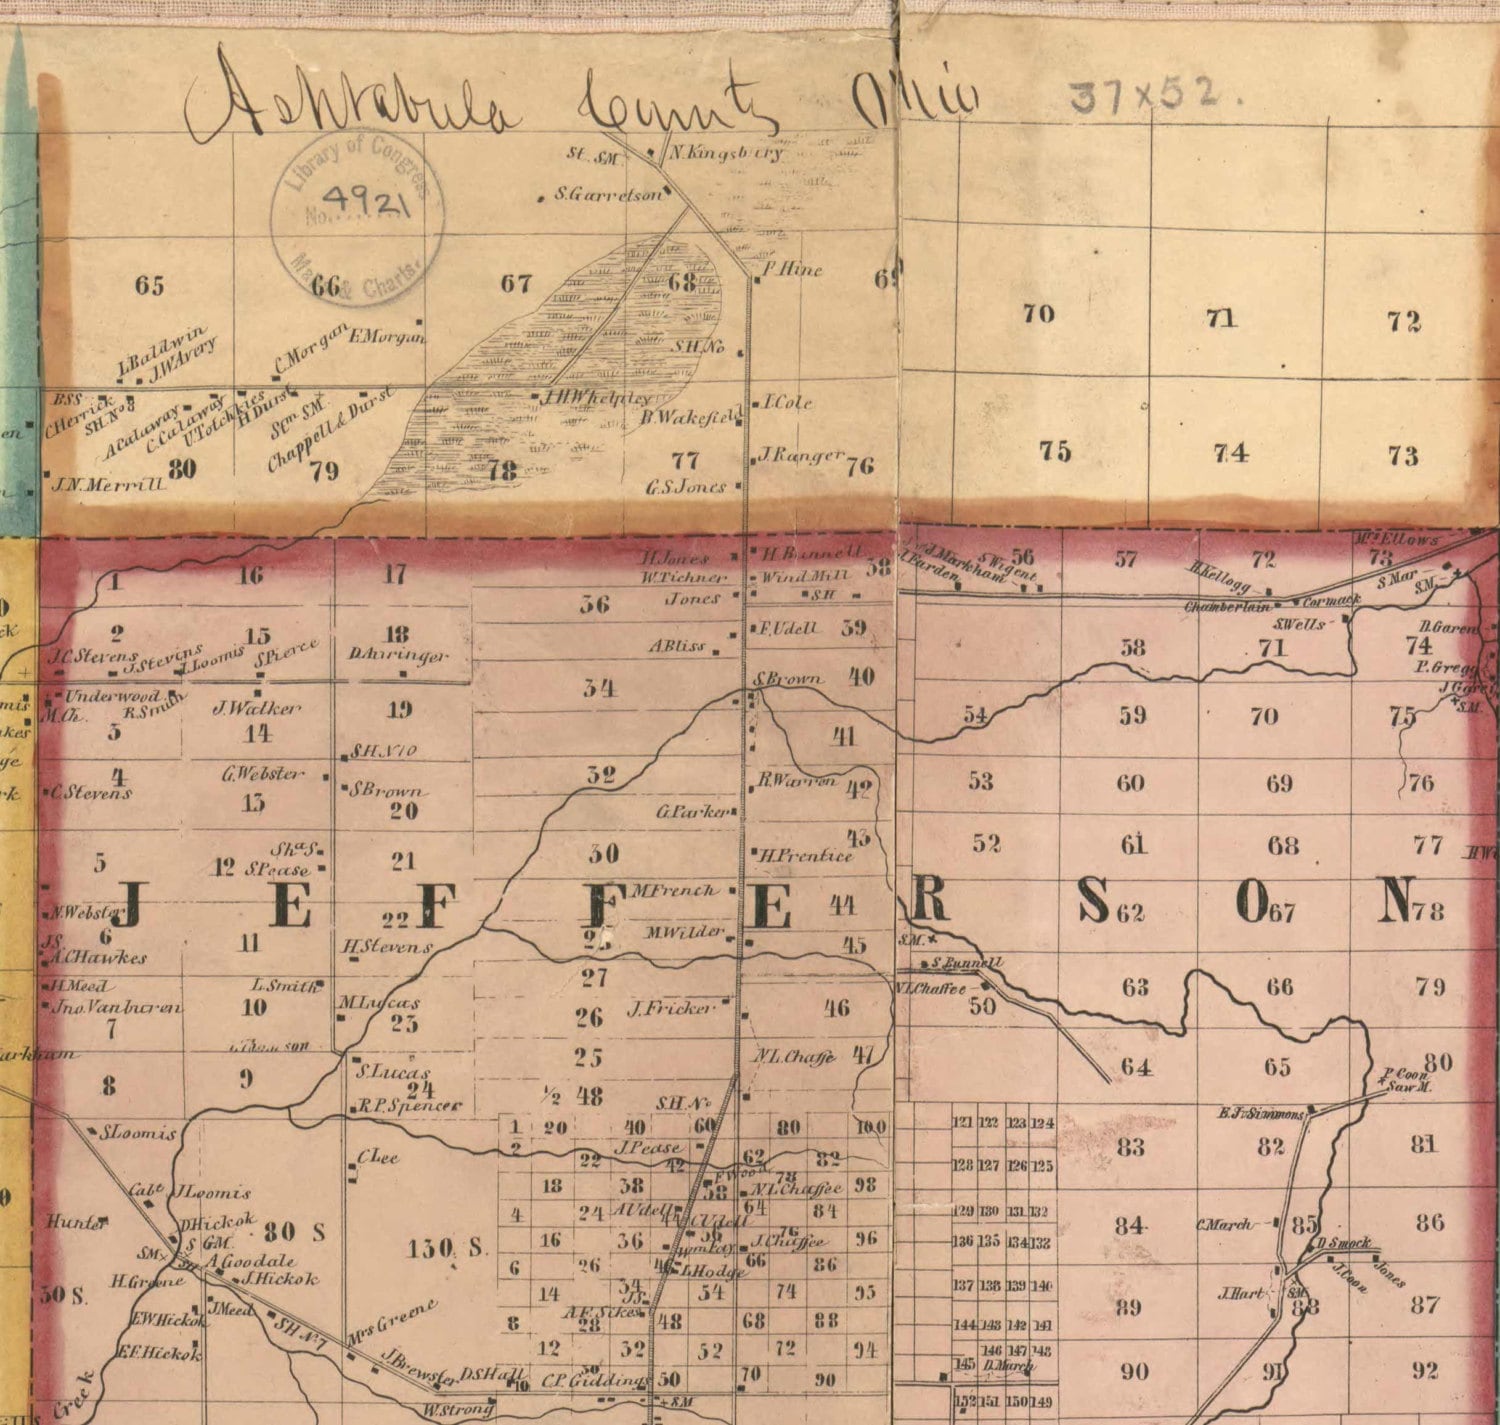 Ashtabula County Ohio 37x52.
Library of Congress
No. 4921
Maps & Charts.
St. SM
N. Kingsbery
S. Garretson
P. Hine
65
66
67
68
69
70
71
72
L. Baldwin
J.W. Avery
C. Morgan
E. Morgan
S.H. No
BSS
C Herrick
SH. No 8
A Calaway
C. Calaway
H Durst
Stm SM.
Chappell & Durst
J.H. Whelpley
B. Wakefield
I. Cole
J. Ranger
G.S. Jones
J.N. Merrill
80
79
78
77
76
75
74
73
H. Jones
H. Bunnell
W. Tichner
Wind Mill
Jones
S.H
38
J. Markham
S. Wigent
56
57
72
73
Mrs. Ellows
H. Kellogg
Chamberlain
Cormack
S. Mar
S.M.
S. Wells
D. Garen
1
16
17
36
2
15
18
A. Bliss
E. Udell
39
58
71
74
P. Gregg
J.C. Stevens
J. Stevens
J. Loomis
S. Pierce
34
S. Brown
40
S.M.
Underwood
M. Ch.
R. Smith
J. Walker
19
3
14
41
54
59
70
75
S.H. N 10
4
G. Webster
C. Stevens
13
S Brown
20
32
R. Warren
42
53
60
69
76
G. Parker
43
5
12
Shas S.
S. Pease
21
30
H. Prentice
52
61
68
77
JEFFERSON
M. French
N. Webster
22
44
62
67
78
6
J.S.
A.C Hawkes
11
H. Stevens
M. Wilder
45
S.M.
27
S. Bunnell
H. Meed
L. Smith
N.L. Chaffee
50
63
66
79
Jno. Vanburen
10
M. Lucas
23
26
J. Fricker
46
7
25
N.L. Chaffe
47
64
65
80
8
9
S. Lucas
24
R.P. Spencer
½ 48
S.H. No
P. Coon
Saw M.
E. J. Simmons
1 20 40 60 80 100
121 122 123 124
83
82
81
S. Loomis
C Lee
2 22
J. Pease
42 62 82
128 127 126 125
Cabt
J Loomis
18 38 58 78 98
N.L. Chaffee
Hunter
D Hickok
S GM.
80 S
130 S.
4 24
A Udell
C Udell
64 84
129 130 131 132
84
C. March
85
86
S M
A Goodale
16 36 56 76 96
J. Chaffee
136 135 134 133
D. Smock
H. Greene
J. Hickok
6 26 46
L Hodge
66 86
J. Coon
Jones
50 S.
14 34 54 74 95
137 138 139 140
89
J. Hart
S.M.
88
87
E.W. Hickok
J. Meed
S H N 7
Mrs Greene
J.S.
A.F. Sikes
8 28 48 68 88
144 143 142 141
E.F. Hickok
12 32 52 72 94
146 147 148
145
D. March
J. Brewster
D.S Hall
10
C.P. Giddings
30 50 70 90
90
91
92
Creek
W. Strong
S.M
152 151 150 149